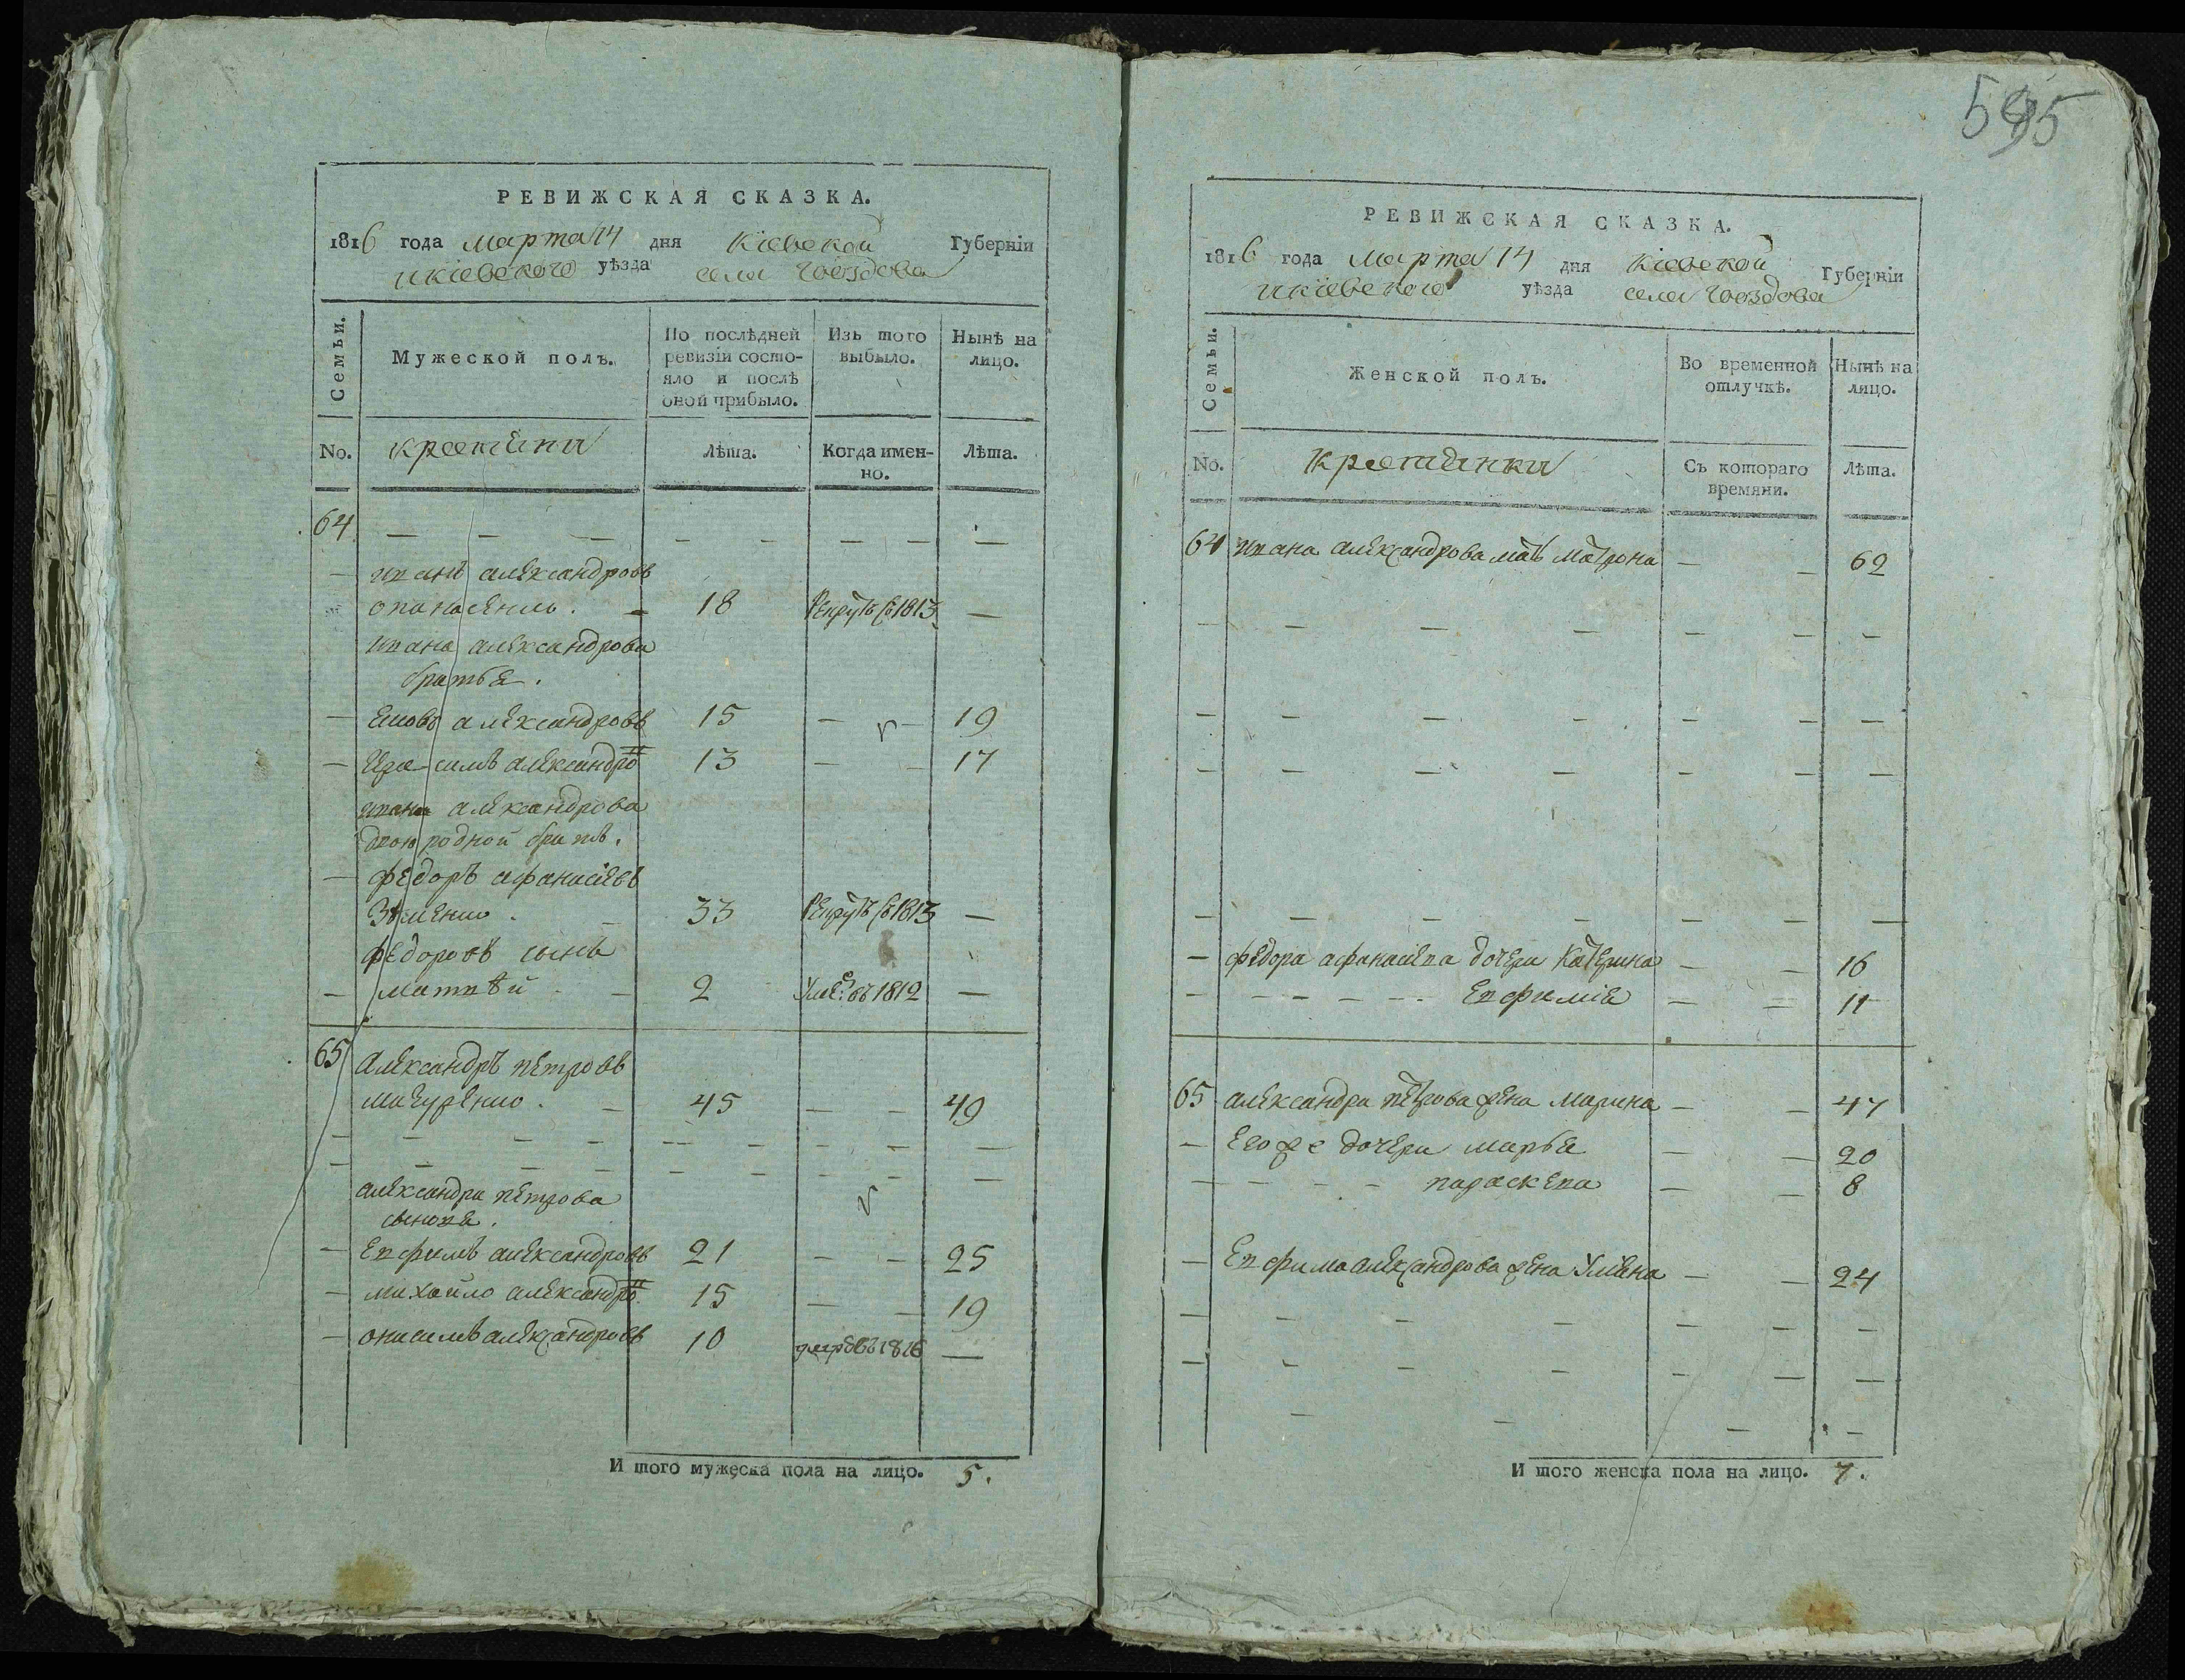 РЕВИЖСКАЯ СКАЗКА.
1816 года марта 14 дня Кіевской Губерніи
икіевского уѣзда села Гвоздова
Семьи.
Мужеской полъ.
По послѣдней ревизіи состояло и послѣ оной прибыло.
Изъ того выбыло.
Нынѣ на лицо.
No.
Лѣта.
Когда именно.
Лѣта.
64 — — — — — — — —
— иванъ александровъ
опанасенко. — 18 Рекрутъ въ 1813 —
ивана александрова
братья.
— александровъ 15 — — 19
— александро 13 — — 17
ивана александрова
двоюродной братъ.
— федоръ афанасіевъ
— 33 Рекрутъ въ 1813 —
федоровъ сынъ
— матвѣй — 2 въ 1812 —
65 александръ петровъ
— 45 — — 49
— — — — — — — — —
— — — — — — — — —
александра петрова
сыновя.
— евфимъ александровъ 21 — — 25
— михайло александро 15 — — 19
— онисимъ александровъ 10 —
И того мужеска пола на лицо. 5.
595
РЕВИЖСКАЯ СКАЗКА.
1816 года марта 14 дня Кіевской Губерніи
икіевского уѣзда села Гвоздова
Семьи.
Женской полъ.
Во временной отлучкѣ.
Нынѣ на лицо.
No.
Съ котораго времяни.
Лѣта.
64 ивана александрова мать матрона — — 62
— — — — — — —
— — — — — — —
— — — — — — —
— — — — — — —
— федора афанасіева дочери катерина — — 16
— — — — — — евфимія — — 11
65 александра петрова жена марина — — 47
— его же дочери марья — — 20
— — — — параскева — — 8
— евфима александрова жена уляна — — 24
— — — — — — —
— — — — — — —
— — — —
И того женска пола на лицо. 7.